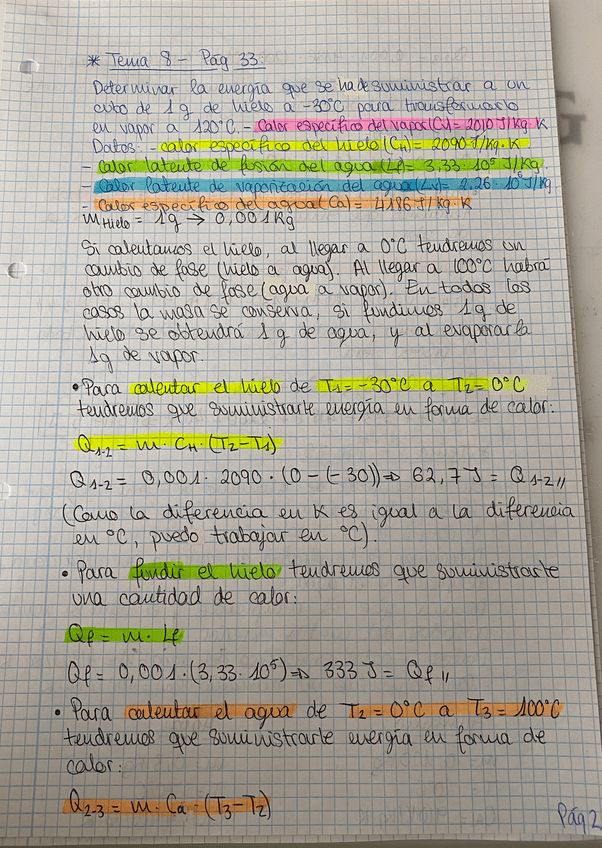 * Tema 8 - Pág 33:
Determinar la energía que se ha de suministrar a un
cubo de 1 g de hielo a -30°C para transformarlo
en vapor a 120°C. - Calor específico del vapor (Cv) = 2010 J/kg · K
Datos: - Calor específico del hielo (CH) = 2090 J/kg · K
- Calor latente de fusión del agua (Lf) = 3,33 · 10⁵ J/kg
- Calor latente de vaporización del agua (Lv) = 2,26 · 10⁶ J/kg
- Calor específico del agua (Ca) = 4186 J/kg · K
mHielo = 1g → 0,001 kg
Si calentamos el hielo, al llegar a 0°C tendremos un
cambio de fase (hielo a agua). Al llegar a 100°C habrá
otro cambio de fase (agua a vapor). En todos los
casos la masa se conserva, si fundimos 1g de
hielo se obtendrá 1 g de agua, y al evaporarla
1g de vapor.
• Para calentar el hielo de T1 = -30°C a T2 = 0°C
tendremos que suministrarle energía en forma de calor:
Q1-2 = m · CH · (T2 - T1)
Q1-2 = 0,001 · 2090 · (0 - (-30)) ⇒ 62,7 J = Q1-2 //
(Como la diferencia en K es igual a la diferencia
en °C, puedo trabajar en °C).
• Para fundir el hielo tendremos que suministrarle
una cantidad de calor:
Qf = m · Lf
Qf = 0,001 · (3,33 · 10⁵) ⇒ 333 J = Qf //
• Para calentar el agua de T2 = 0°C a T3 = 100°C
tendremos que suministrarle energía en forma de
calor:
Q2-3 = m · Ca · (T3 - T2)
Pág 2
G